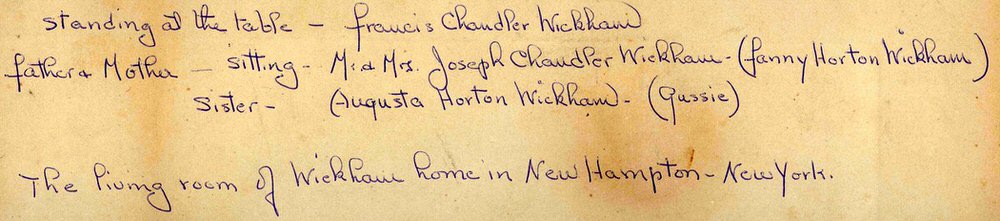 Standing at the table - Francis Chandler Wickham
Father & Mother - Sitting - Mr & Mrs. Joseph Chandler Wickham - (Fanny Horton Wickham)
Sister - (Augusta Horton Wickham) - (Gussie)
The living room of Wickham home in New Hampton - New York.